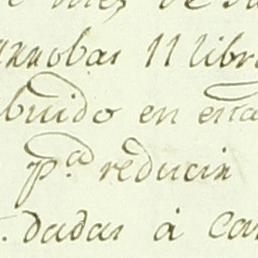 de
arrobas 11 libr
buido en esta
pª reducir
dadas á Car